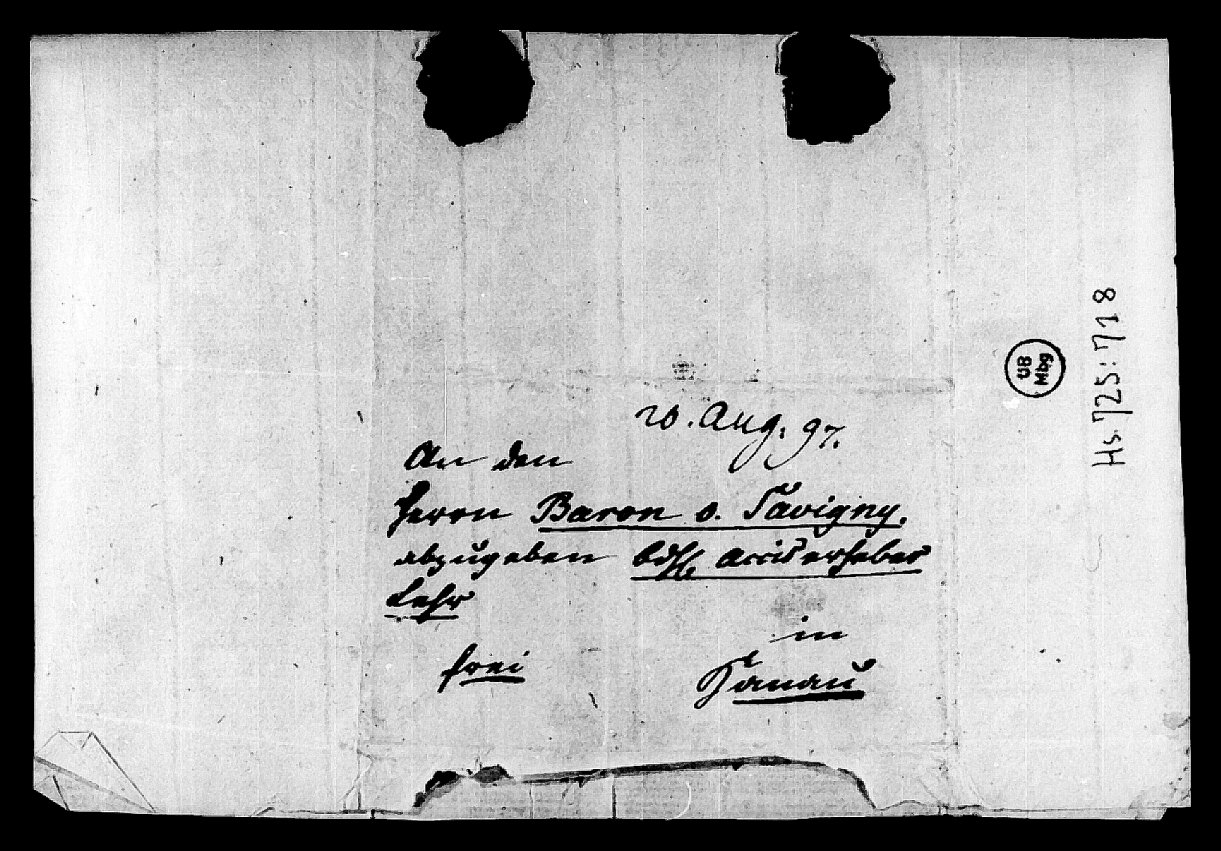 20. Aug. 97.
An den
Herrn Baron v. Savigny.
abzugeben bey Acciserheber
Lehr
in
frei
Hanau
UB
Mbg
Hs. 725:718